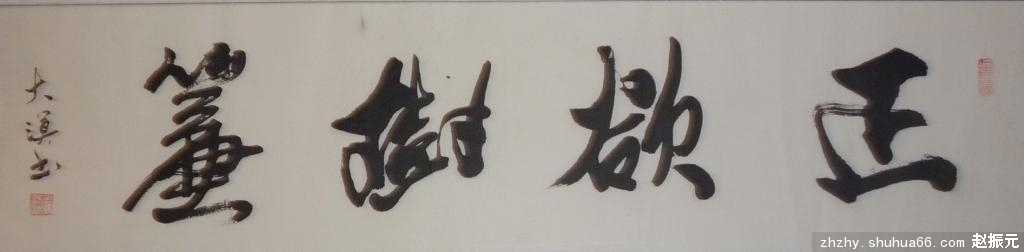 正欲樹簾
大漠书
zhzhy.shuhua66.com 赵振元